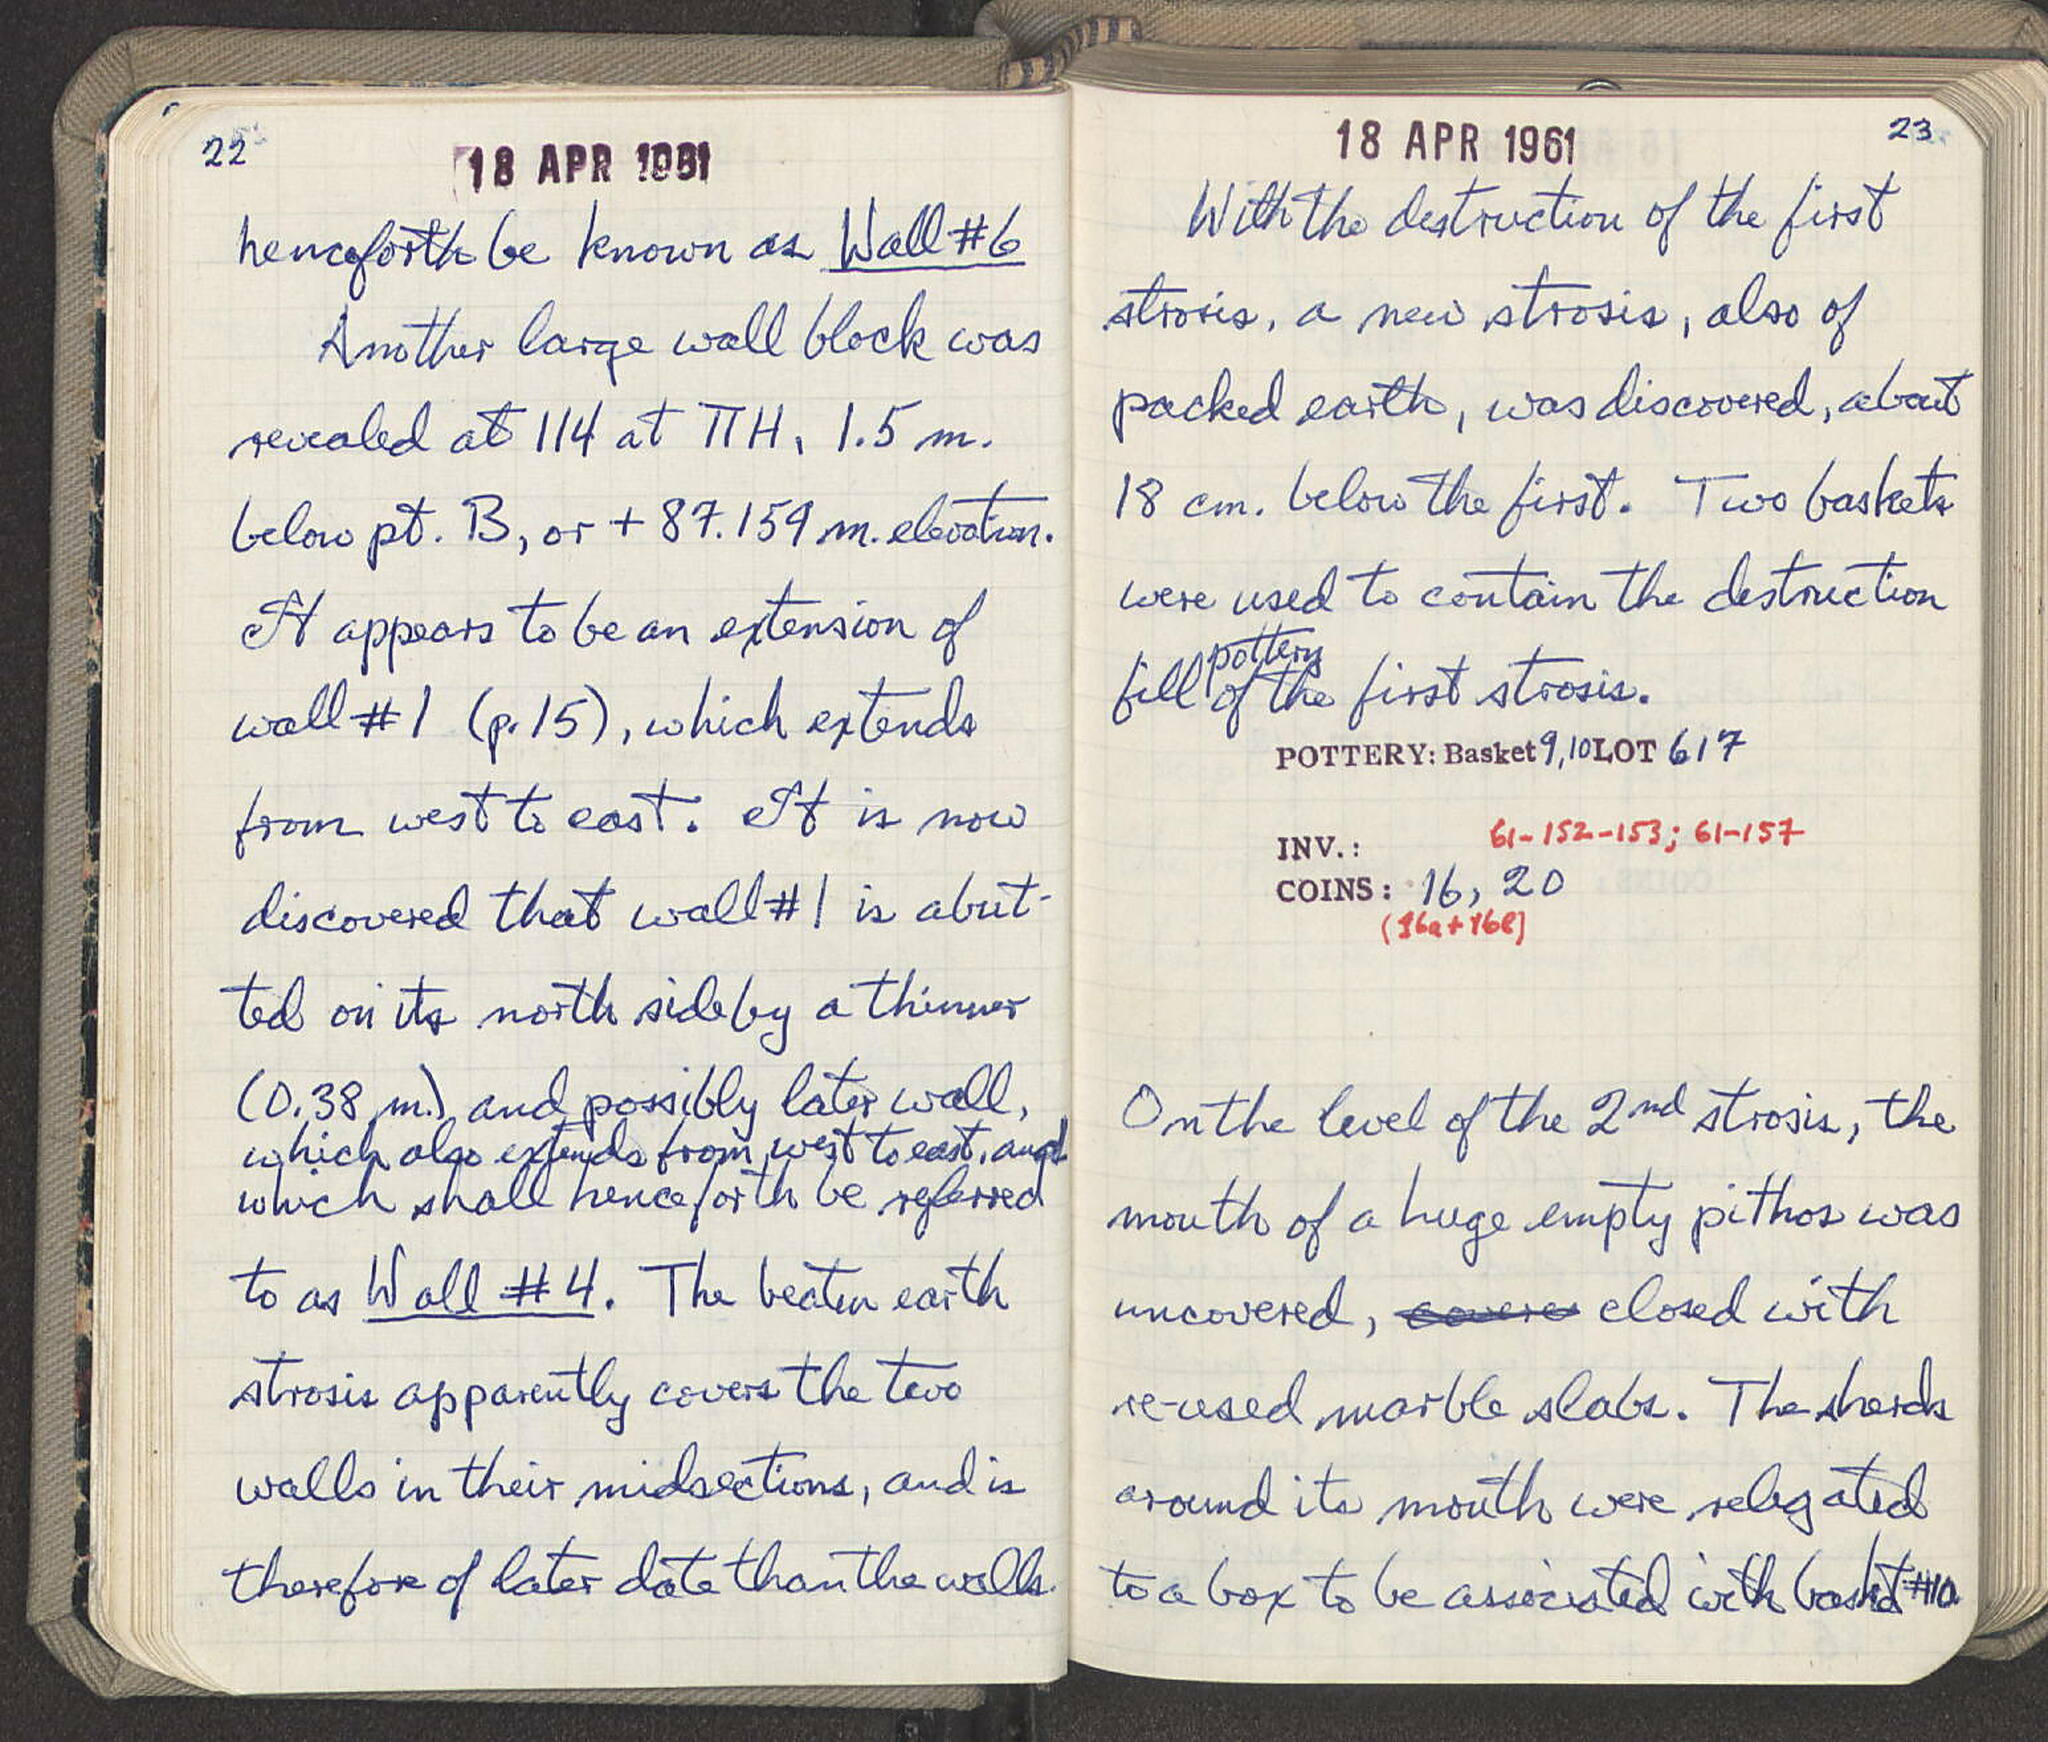 22
18 APR 1961
henceforth be known as Wall #6
Another large wall block was
revealed at 114 at ΠH, 1.5 m.
below pt. B, or + 87.159 m. elevation.
It appears to be an extension of
wall #1 (p. 15), which extends
from west to east. It is now
discovered that wall #1 is abut-
ted on its north side by a thinner
(0.38 m.) and possibly later wall,
which also extends from west to east, and
which shall henceforth be referred
to as Wall #4. The beaten earth
strosis apparently covers the two
walls in their midsections, and is
therefore of later date than the walls.
23
18 APR 1961
With the destruction of the first
strosis, a new strosis, also of
packed earth, was discovered, about
18 cm. below the first. Two baskets
were used to contain the destruction
pottery
fill of the first strosis.
POTTERY: Basket 9,10 LOT 617
INV.: 61-152-153; 61-157
COINS: 16, 20
(16a+16b)
On the level of the 2nd strosis, the
mouth of a huge empty pithos was
uncovered, covered closed with
re-used marble slabs. The sherds
around its mouth were relegated
to a box to be associated with basket #10.